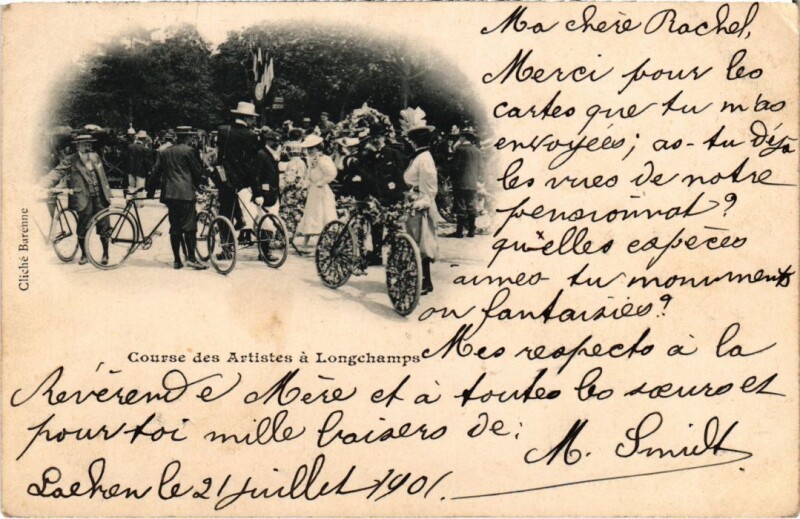 Ma chère Rachel,
Merci pour les
cartes que tu m'as
envoyées; as-tu déjà
les vues de notre
pensionnat?
qu'elles espèces
aimes tu monuments
ou fantaisies?
Cliché Barenne
Course des Artistes à Longchamps
Mes respects à la
Révérende Mère et à toutes les sœurs et
pour toi mille baisers de:
M. Smidt
Laeken le 21 juillet 1901.